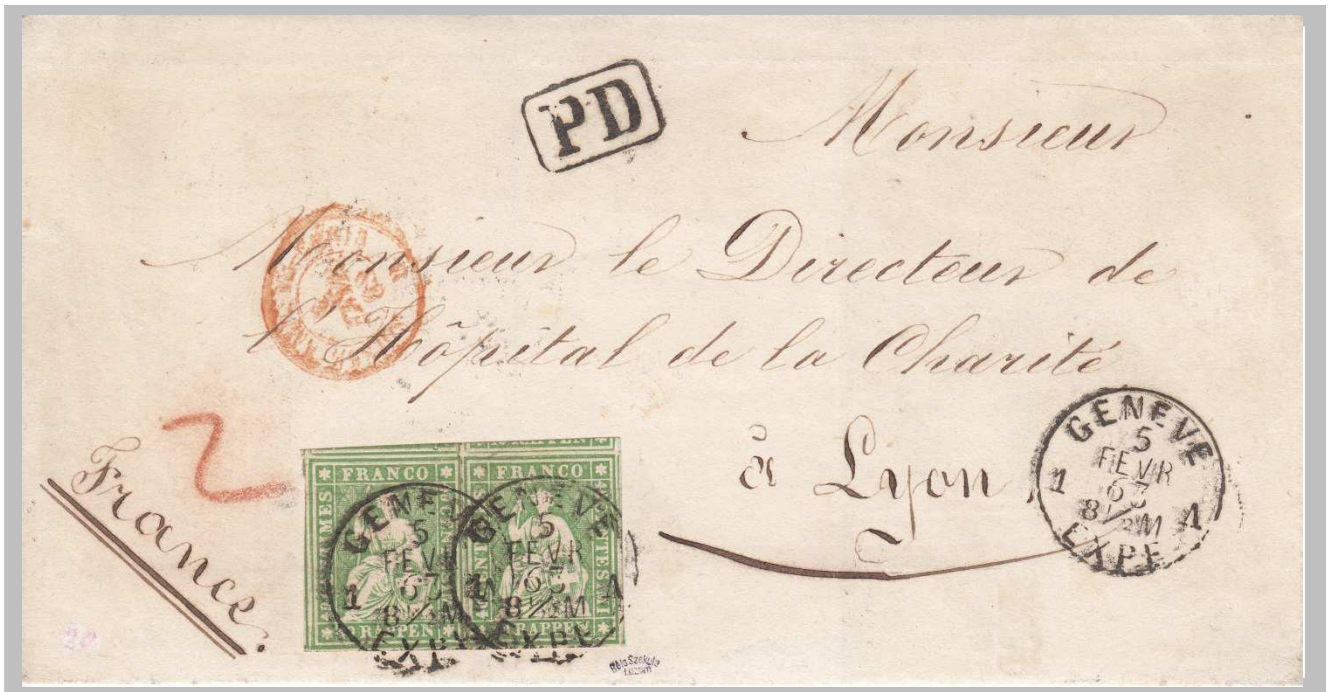 PD
Monsieur
Monsieur le Directeur de
l'Hôpital de la Charité
à Lyon
France.
2
GENEVE
5
FEVR
63
1 8½M A
EXPE
FRANCO FRANCO
RAPPEN RAPPEN
GENEVE
5
FEVR
63
1 8½M
EXPE
GENEVE
5
FEVR
63
1 8½M A
EXPE
20
Béla Szekula
Luzern